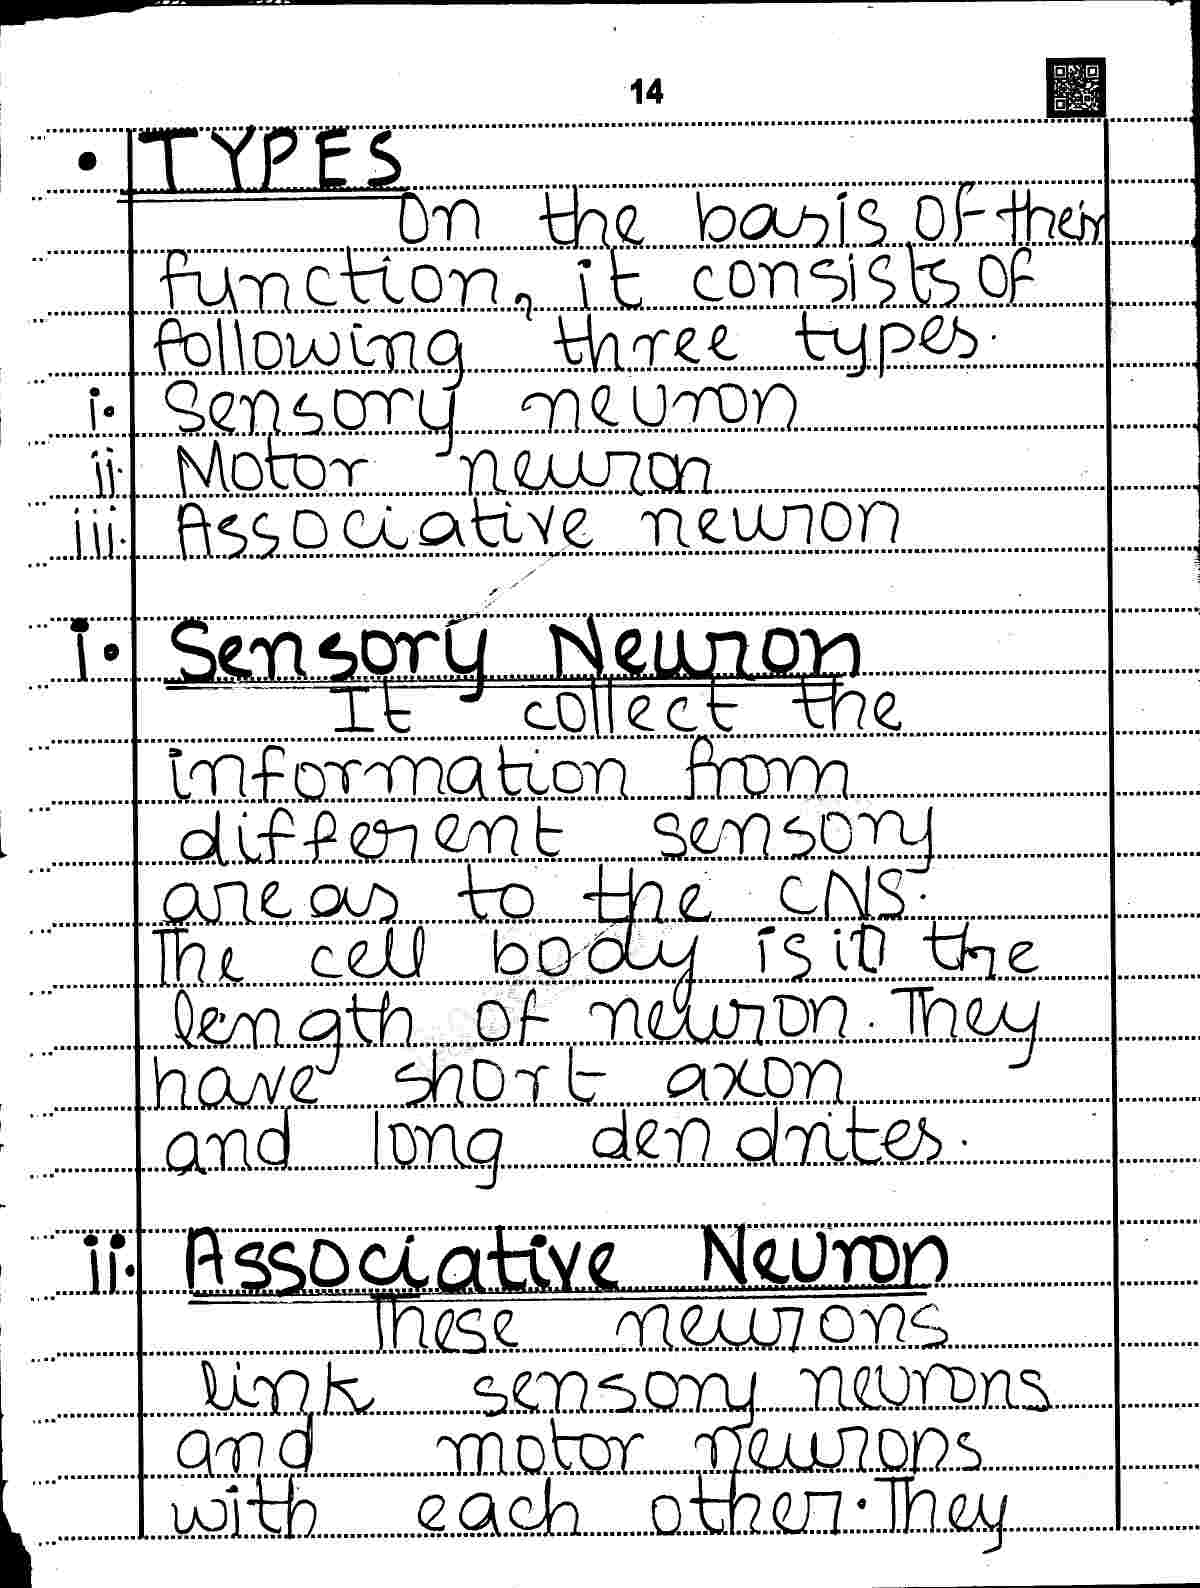 14
• TYPES
On the basis of their
function, it consists of
following three types.
i. Sensory neuron
ii. Motor neuron
iii. Associative neuron
i. Sensory Neuron
It collect the
information from
different sensory
areas to the CNS.
The cell body is in the
length of neuron. They
have short axon
and long dendrites.
ii. Associative Neuron
These neurons
link sensory neurons
and motor neurons
with each other. They